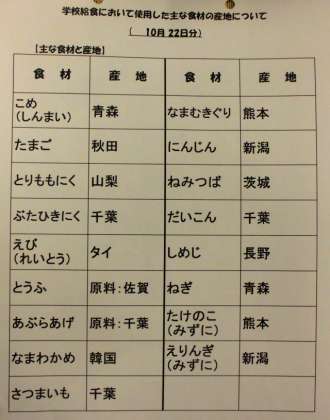 学校給食において使用した主な食材の産地について
( 10月 22日分)
【主な食材と産地】
食 材 産 地 食 材 産 地
こめ
(しんまい) 青森 なまむきぐり 熊本
たまご 秋田 にんじん 新潟
とりももにく 山梨 ねみつば 茨城
ぶたひきにく 千葉 だいこん 千葉
えび
(れいとう) タイ しめじ 長野
とうふ 原料:佐賀 ねぎ 青森
あぶらあげ 原料:千葉 たけのこ
(みずに) 熊本
なまわかめ 韓国 えりんぎ
(みずに) 新潟
さつまいも 千葉